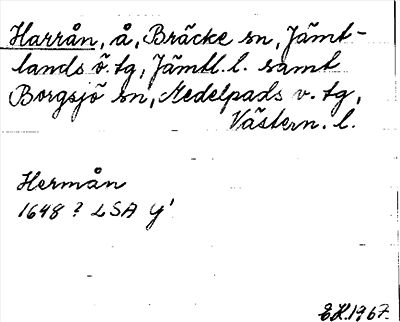 Harrån, å, Bräcke sn, Jämt-
lands ö. tg, Jämtl. l. samt
Borgsjö sn, Medelpads v. tg,
Västern. l.
Hermån
1648 ? LSA Y'
EH. 1967.